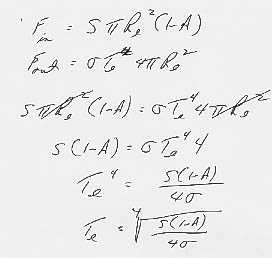 F_in = SπR_e²(1-A)
F_out = σT_e⁴ 4πR_e²
SπR_e²(1-A) = σT_e⁴ 4πR_e²
S(1-A) = σT_e⁴ 4
T_e⁴ = S(1-A)/4σ
T_e = ∜(S(1-A)/4σ)